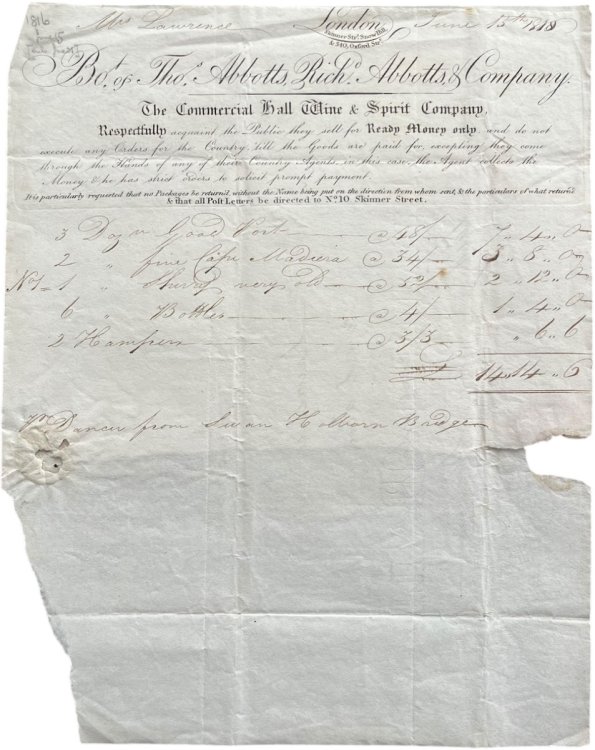 1816
June 15
Mrs Lawrence London June 15th 1818
Skinner Strt. Snow Hill,
& 340, Oxford Strt.
Bot. of Thos. Abbotts, Richd. Abbotts, & Company.
The Commercial Hall Wine & Spirit Company,
Respectfully acquaint the Public they sell for Ready Money only and do not
execute any Orders for the Country, till the Goods are paid for, excepting they come
through the Hands of any of their Country Agents, in this case, the Agent collects the
Money & he has strict orders to solicit prompt payment.
It is particularly requested that no Packages be return'd, without the Name being put on the direction from whom sent, & the particulars of what return'd
& that all Post Letters be directed to No. 10 Skinner Street.
3 Dozn Good Port @ 48/- 7 „ 4 „ 0
2 „ fine Cape Madeira @ 34/- 3 „ 8 „ 0
No 1 = 1 „ Sherry very old @ 52/- 2 „ 12 „ 0
6 „ Bottles @ 4/ 1 „ 4 „ 0
2 Hampers @ 3/3 „ 6 „ 6
14 „ 14 „ 6
pr Dancer from Swan Holborn Bridge